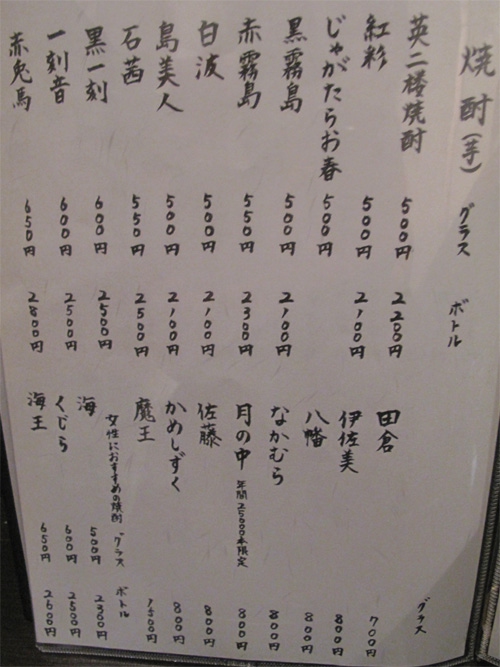 焼酎(芋) グラス ボトル
英二楼焼酎 500円 2200円
紅彩 500円 2,100円
じゃがたらお春 500円
黒霧島 500円 2,100円
赤霧島 550円 2300円
白波 500円 2,100円
島美人 500円 2,100円
石茜 550円 2500円
黒一刻 600円 2500円
一刻音 600円 2500円
赤兎馬 650円 2800円
グラス
田倉 700円
伊佐美 800円
八幡 800円
なかむら 800円
月の中 年間25000本限定 800円
佐藤 800円
かめしずく 800円
魔王 1500円
女性におすすめの焼酎 グラス ボトル
海 500円 2300円
くじら 600円 2500円
海王 650円 2600円